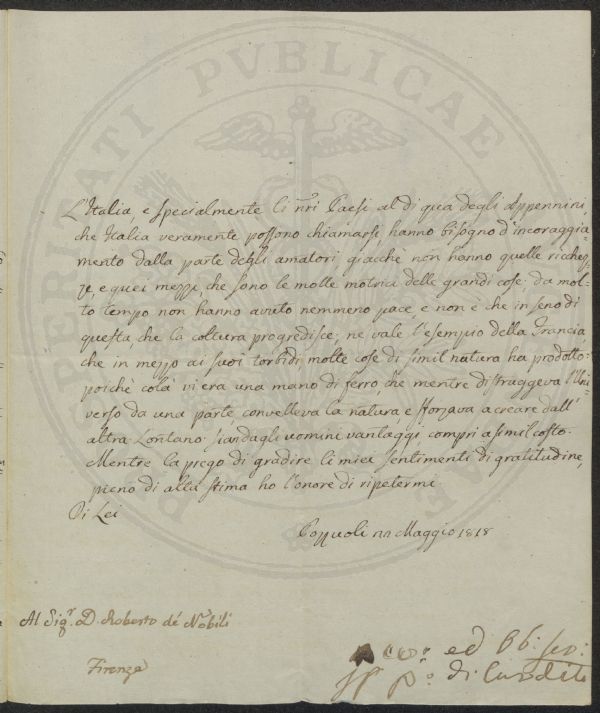 PROSPERITATI PVBLICAE
L'Italia, e specialmente li nri Paesi al di qua degli Appennini,
che Italia veramente possono chiamarsi, hanno bisogno d'incoraggia-
mento dalla parte degli amatori giacchè non hanno quelle ricchez-
ze, e quei mezzi, che sono le molte motrici delle grandi cose; da mol-
to tempo non hanno avuto nemmeno pace, e non è che in seno di
questa che la coltura progredisce; nè vale l'esempio della Francia
che in mezzo ai suoi torbidi molte cose di simil natura ha prodotto:
poichè colà vi era una mano di ferro, che mentre distraggeva l'Uni-
verso da una parte, convelleva la natura, e sforzava a creare dall'
altra. Lontano sian dagli uomini vantaggi compri a simil costo.
Mentre la prego di gradire li miei sentimenti di gratitudine,
pieno di alta stima ho l'onore di ripetermi
Di Lei
Pozzuoli Maggio 1818
Al Sigr. D. Roberto de' Nobili
Firenze
ed
di